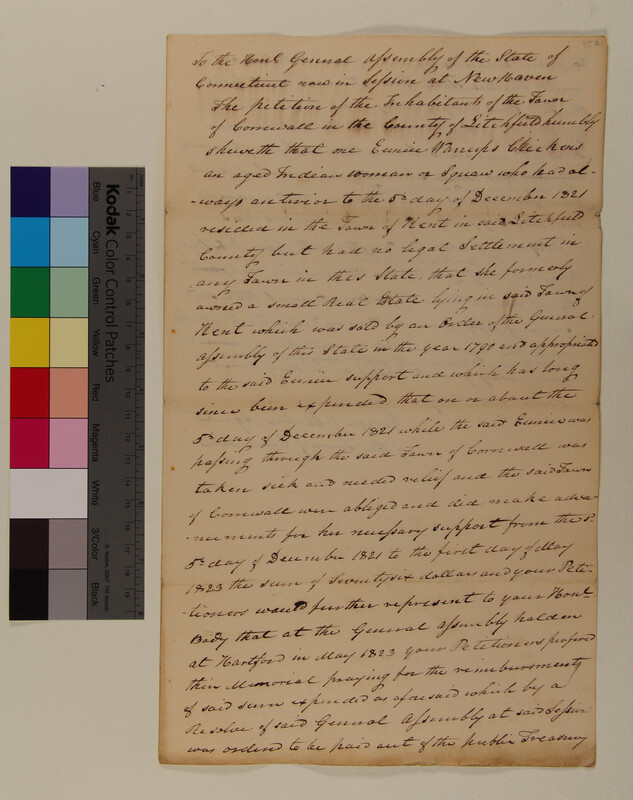 To the Honl General Assembly of the State of
Connecticut now in Session at New Haven
The petition of the Inhabitants of the Town
of Cornwall in the County of Litchfield humbly
sheweth that one Eunice Warrups Chickens
an aged Indian woman or Squaw who had al-
-ways anterior to the 5th day of December 1821
resided in the Town of Kent in said Litchfield
County but had no legal Settlement in
any Town in this State, that she formerly
owned a small Real Estate lying in said Town of
Kent which was sold by an Order of the General
Assembly of this State in the year 1790 and appropriated
to the said Eunice support and which has long
since been expended that on or about the
5th day of December 1821 while the said Eunice was
passing through the said Town of Cornwall was
taken sick and needed relief and the said Town
of Cornwall were obliged and did make adva-
-ncements for her necessary support from the sd
5th day of December 1821 to the first day of May
1823 the sum of Seventy six dollars and your Peti-
-tioners would further represent to your Honl
Body that at the General Assembly holden
at Hartford in May 1823 your Petitioners prefered
their Memorial praying for the reimbursments
of said sum expended as aforesaid which by a
Resolve of said General Assembly at said Session
was ordered to be paid out of the public Treasury
Kodak Color Control Patches
Blue
Cyan
Green
Yellow
Red
Magenta
White
3/Color
Black